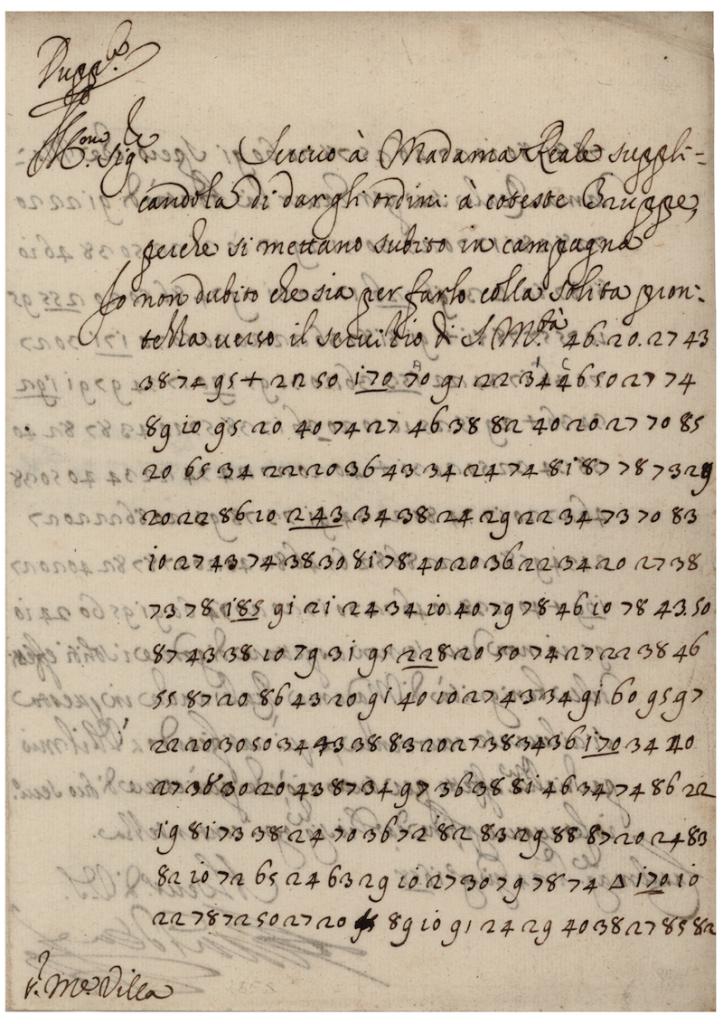 Dupp.to
Ill.mo Sig.re Scrivo à Madama Reale suppli-
candola di dargli ordini à coteste Truppe,
perche si mettano subito in campagna
Io non dubito che sia per farlo colla solita pron-
tezza verso il servitio di S. M.tà 46. 20. 27 43
38 74 95 + 22 50 170 70 91 22 34 46 50 27 74
89 10 95 20 40 74 27 46 38 82 40 20 27 70 85
20 65 34 22 20 36 43 34 24 74 81 87 78 73 29
20 22 86 10 243 34 38 24 29 22 34 73 70 83
10 27 43 74 38 30 81 78 40 20 36 22 34 20 27 38
73 78 185 91 21 24 34 10 40 79 78 46 10 78 43. 50
87 43 38 10 79 31 95 228 20 50 74 27 22 38 46
55 87 20 86 43 20 91 40 10 27 43 34 91 60 95 97
22 20 30 50 34 43 38 83 20 27 38 34 36 170 34 40
27 38 30 20 43 87 34 97 36 38 81 46 34 74 86 22
19 81 73 38 24 70 36 72 82 83 29 88 87 20 24 83
82 10 72 65 24 63 29 10 27 30 79 78 74 Δ 170 10
22 78 72 50 27 20 89 10 91 24 29 40 38 27 85 82
r. M.e Villa